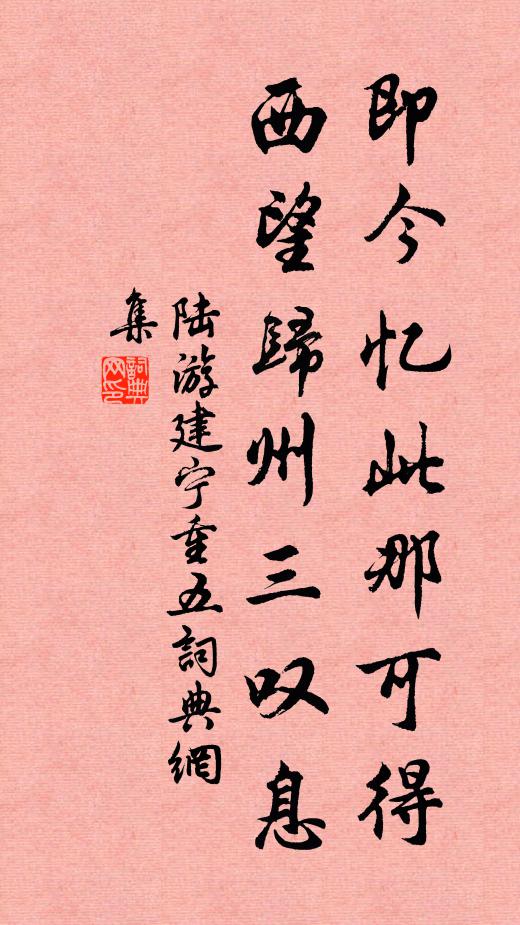 即今忆此那可得
西望歸州三叹息
陆游建宁重五詞典網
集
詞典
网印